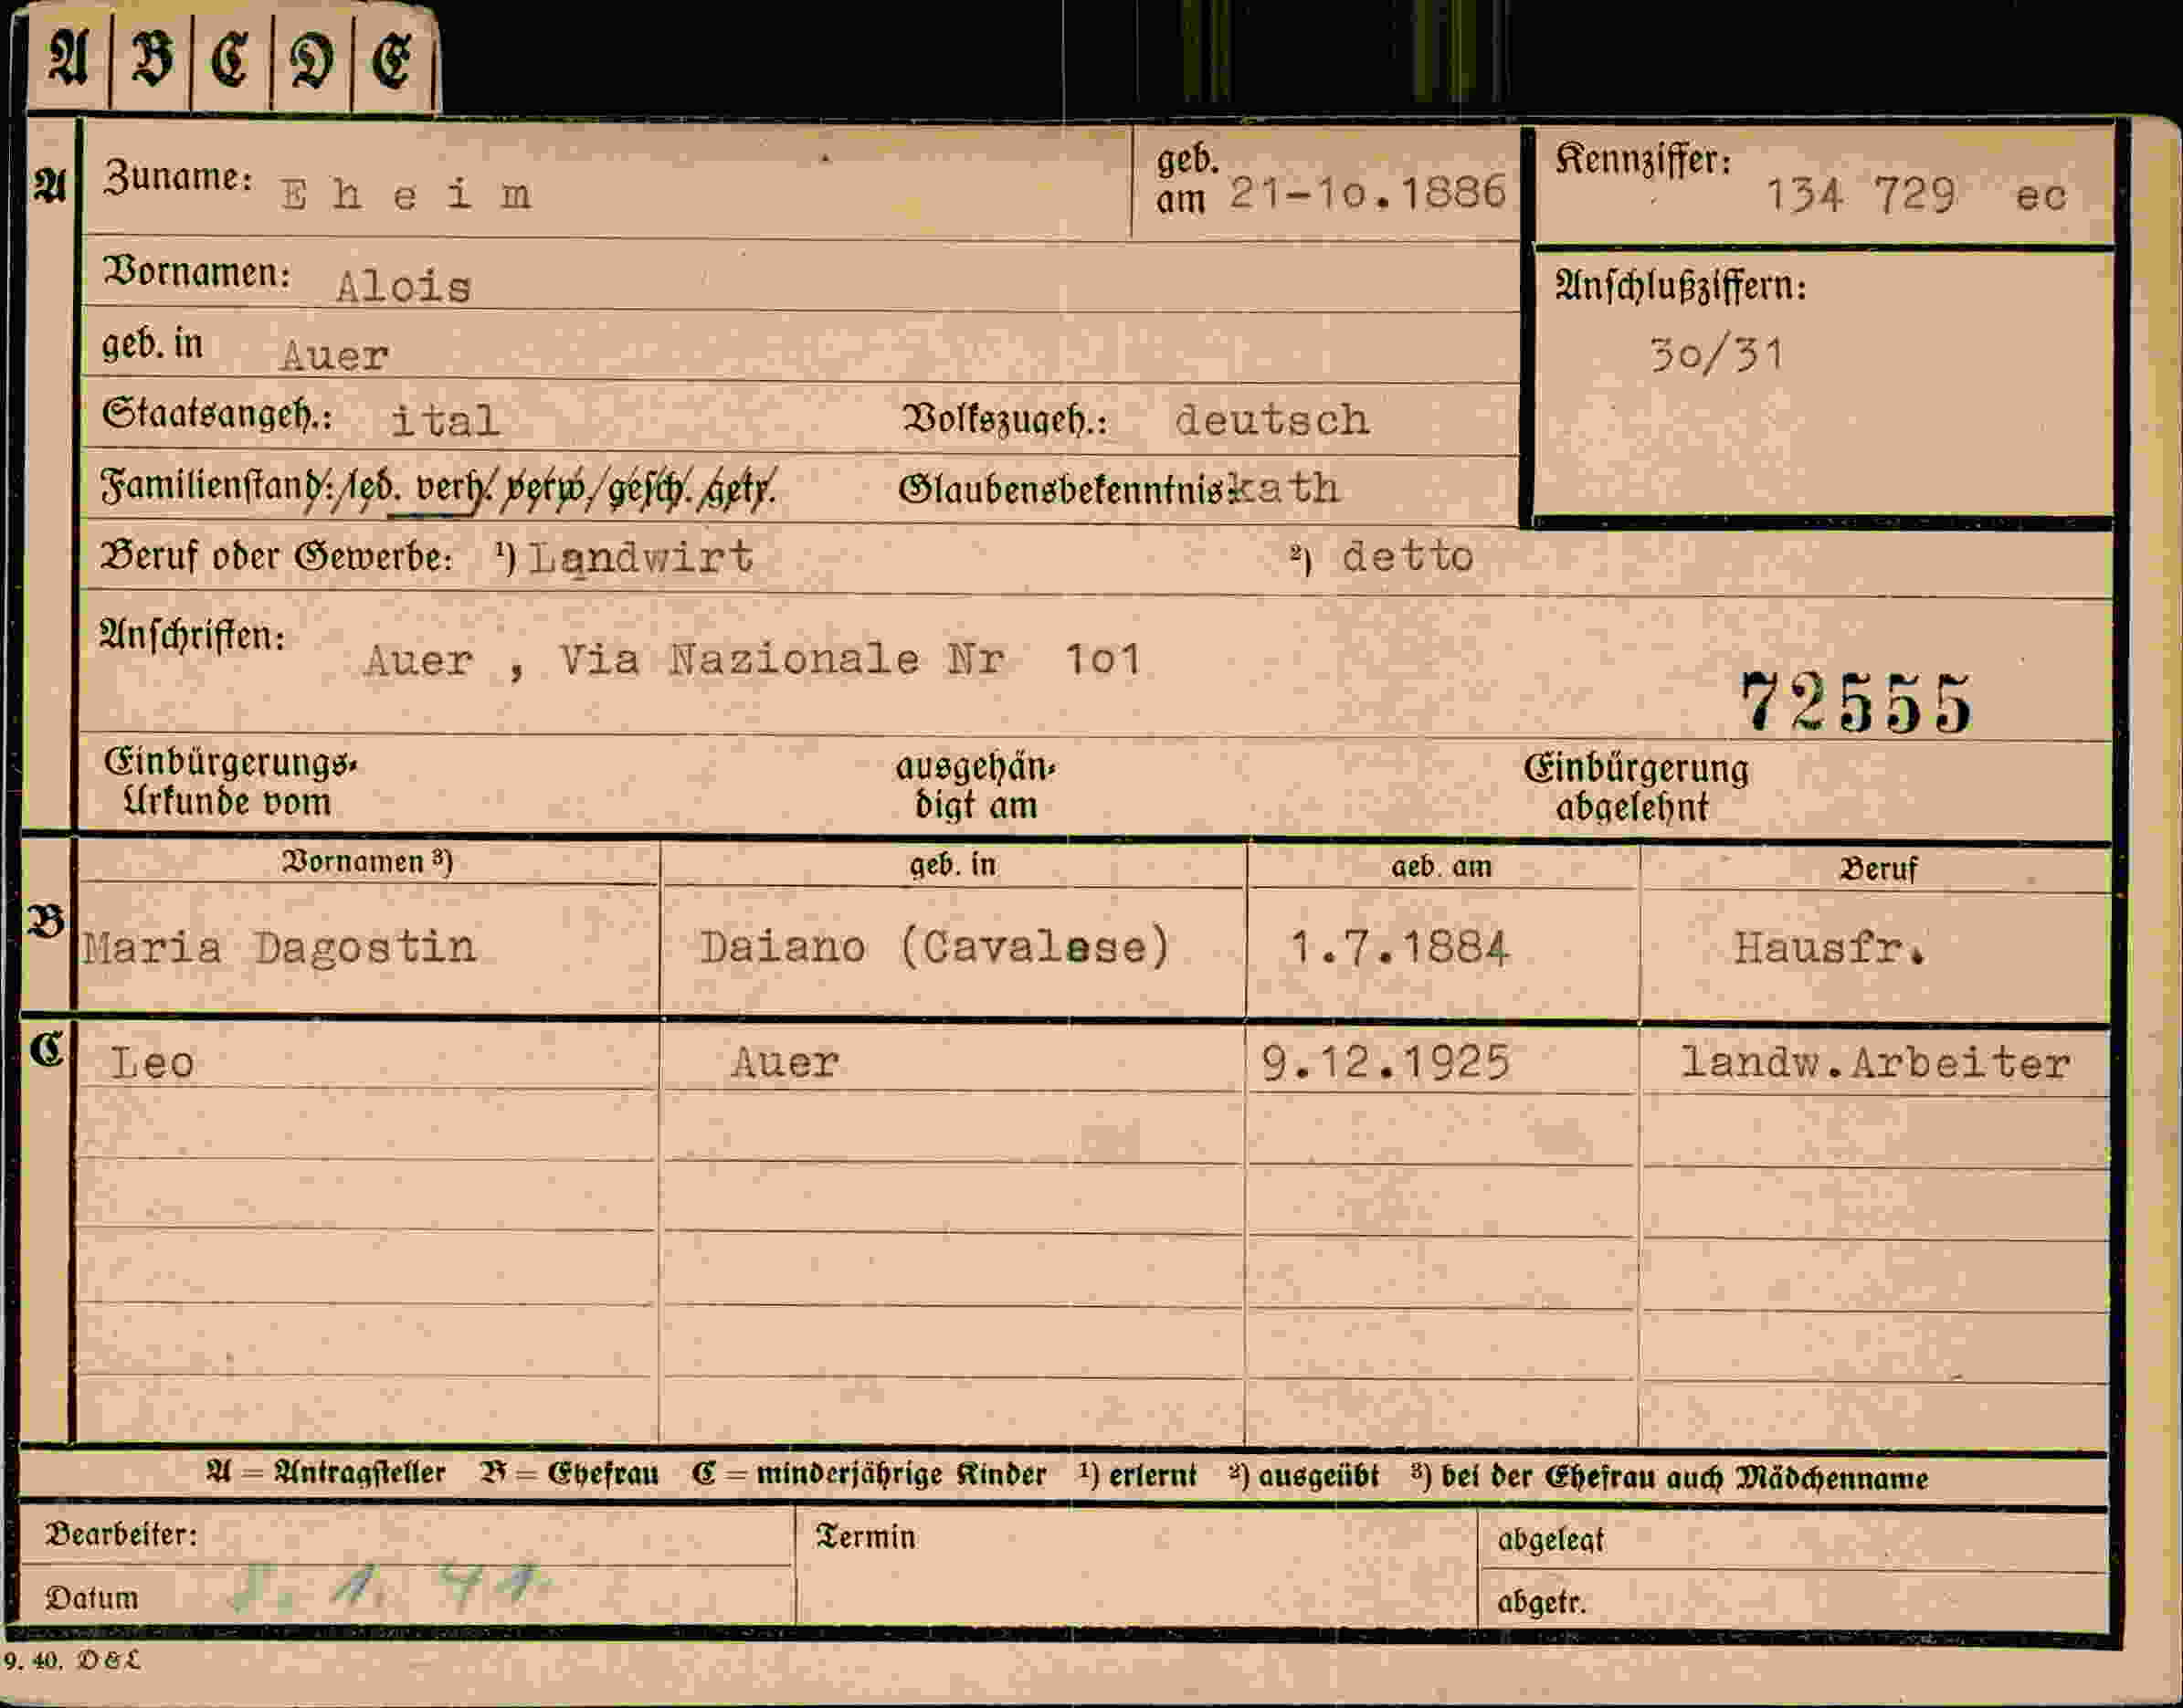 A B C D E
A Zuname: E h e i m geb. am 21-10.1886 Kennziffer: 134 729 ec
Vornamen: Alois Anschlußziffern:
geb. in Auer 30/31
Staatsangeh.: ital Volkszugeh.: deutsch
Familienstand: led. verh. verw. gesch. getr. Glaubensbekenntnis: kath
Beruf oder Gewerbe: ¹) Landwirt ²) detto
Anschriften: Auer , Via Nazionale Nr 1o1
72555
Einbürgerungs- ausgehän- Einbürgerung
Urkunde vom digt am abgelehnt
Vornamen ³) geb. in geb. am Beruf
B Maria Dagostin Daiano (Cavalese) 1.7.1884 Hausfr.
C Leo Auer 9.12.1925 landw.Arbeiter
A = Antragsteller B = Ehefrau C = minderjährige Kinder ¹) erlernt ²) ausgeübt ³) bei der Ehefrau auch Mädchenname
Bearbeiter: Termin abgelegt
Datum 1. 41 abgetr.
9. 40. D & L